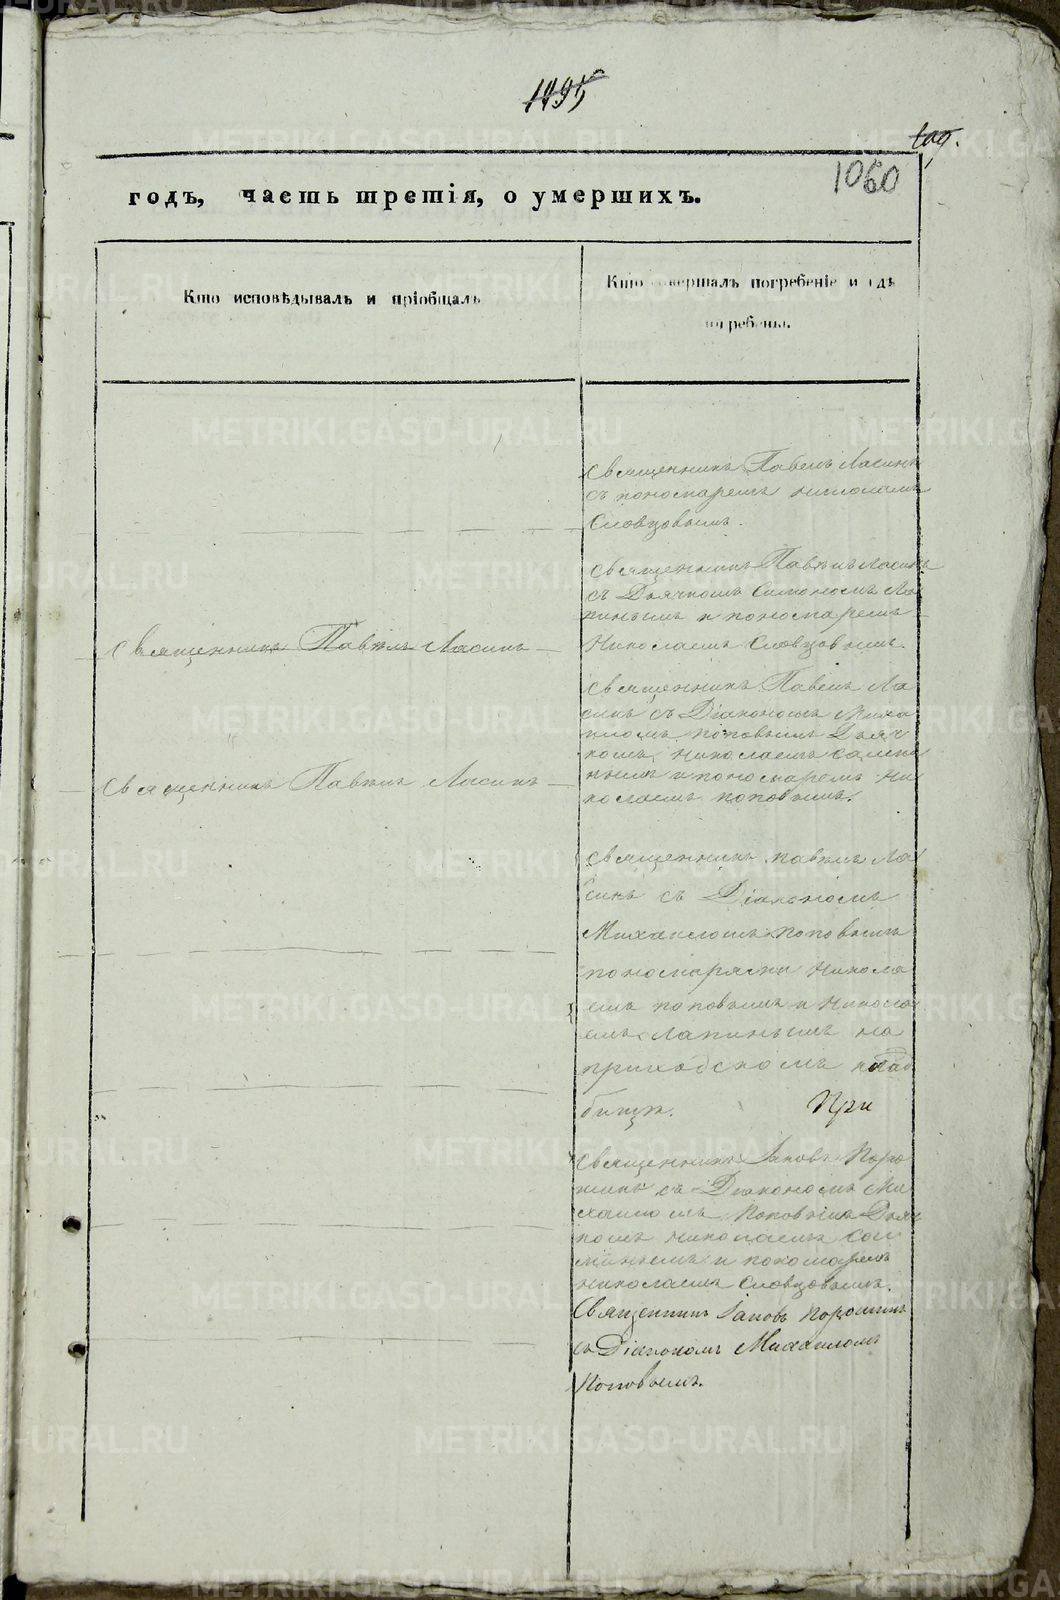 1060
годъ, часть третія, о умершихъ.
Кто исповѣдывалъ и пріобщалъ
Кто совершалъ погребеніе и гдѣ
погребены.
Священникъ Павелъ Ласинъ
съ пономаремъ Николаемъ
Словцовымъ.
Священникъ Павелъ Ласинъ
съ Дьячкомъ Симономъ Ла
пинымъ и пономаремъ
Николаемъ Словцовымъ.
Священникъ Павелъ Ласинъ
Священникъ Павелъ Ла
синъ съ Діакономъ Миха
иломъ Поповымъ Дьяч
комъ Николаемъ
и пономаремъ Ни
колаемъ Поповымъ.
Священникъ Павелъ Ласинъ
Священникъ Павелъ Ла
синъ съ Діакономъ
Михаиломъ Поповымъ
пономарями Никола
емъ Поповымъ и Никола
емъ Лапинымъ на
приходскомъ клад
бищѣ. При
Священникъ Іаковъ Поро
шинъ съ Діакономъ Ми
хаиломъ Поповымъ Дьяч
комъ Николаемъ
и пономаремъ
Николаемъ Словцовымъ.
Священникъ Іаковъ Порошинъ
съ Діакономъ Михаиломъ
Поповымъ.
METRIKI.GASO-URAL.RU